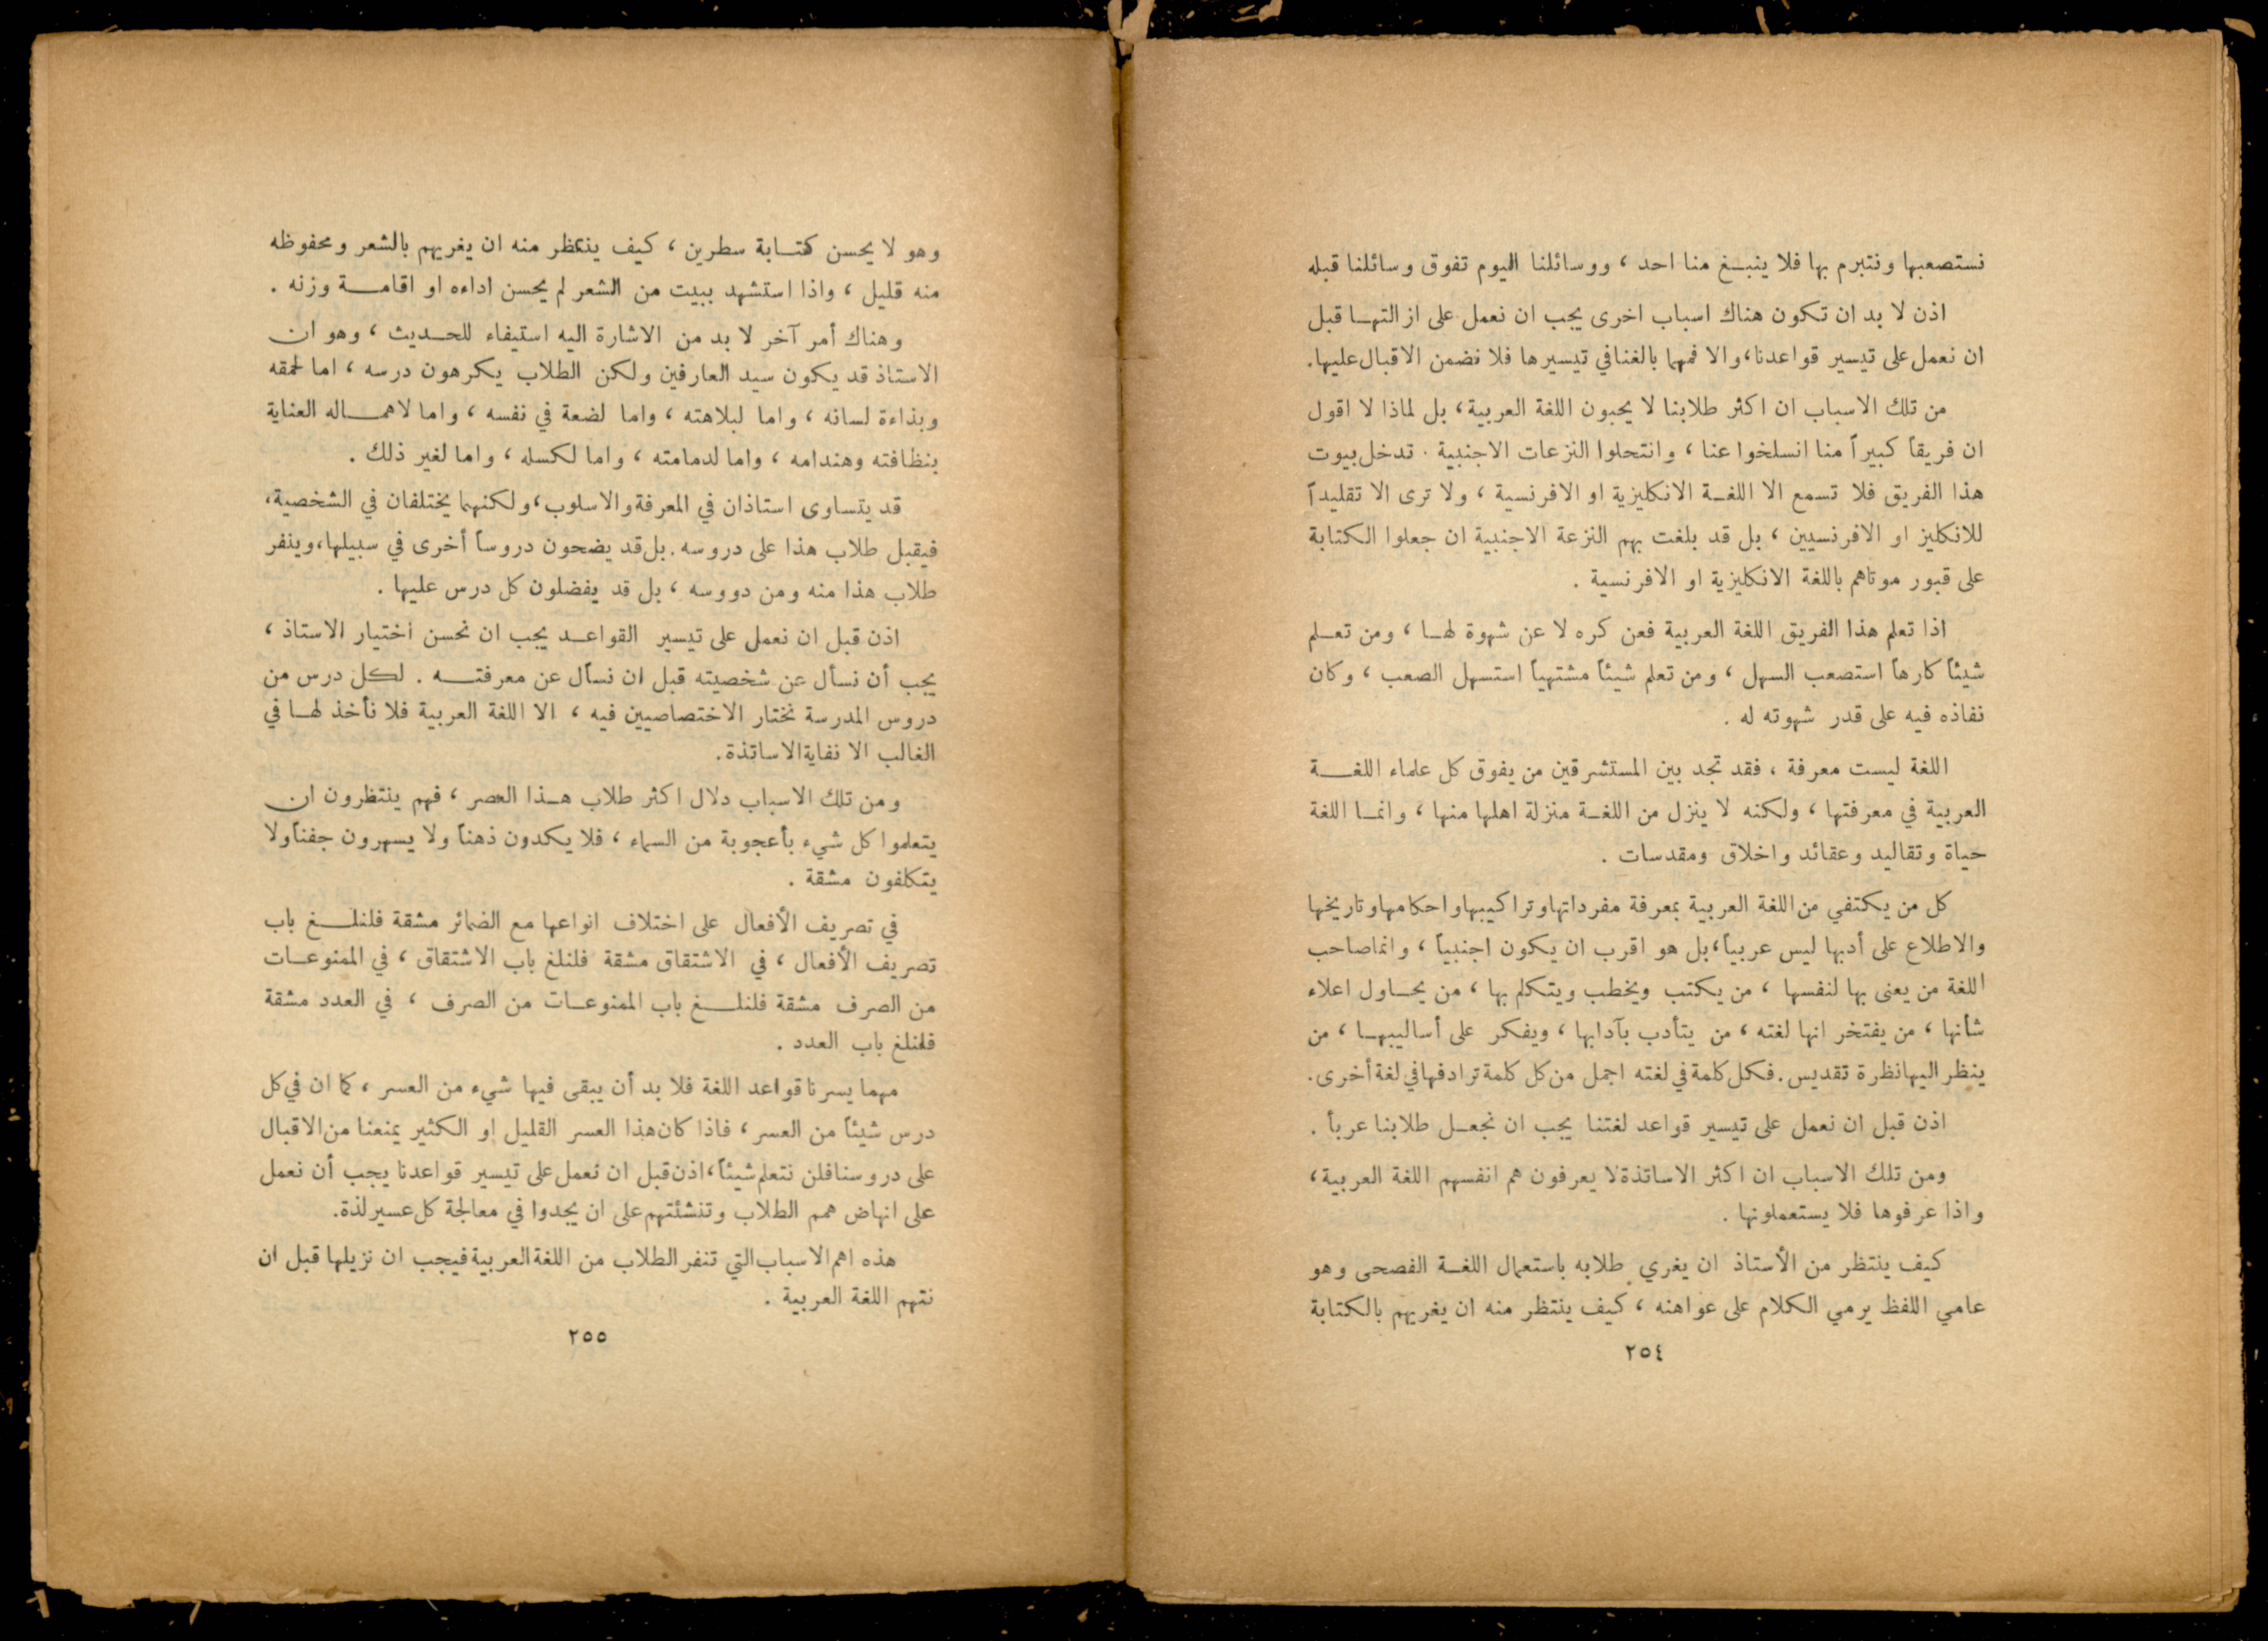 نستصعبها ونتبرم بها فلا ينبغ منا احد ، ووسائلنا اليوم تفوق وسائلنا قبله
اذن لا بد ان تكون هناك اسباب اخرى يجب ان نعمل على ازالتها قبل
ان نعمل على تيسير قواعدنا، والا فمهما بالغنا في تيسيرها فلا نضمن الاقبال عليها.
من تلك الاسباب ان اكثر طلابنا لا يحبون اللغة العربية ، بل لماذا لا اقول
ان فريقاً كبيراً منا انسلخوا عنا ، وانتحلوا النزعات الاجنبية . تدخل بيوت
هذا الفريق فلا تسمع الا اللغة الانكليزية او الافرنسية ، ولا ترى الا تقليداً
للانكليز او الافرنسيين ، بل قد بلغت بهم النزعة الاجنبية ان جعلوا الكتابة
على قبور موتاهم باللغة الانكليزية او الافرنسية .
اذا تعلم هذا الفريق اللغة العربية فعن كره لا عن شهوة لها ، ومن تعلم
شيئاً كارهاً استصعب السهل ، ومن تعلم شيئاً مشتهياً استسهل الصعب ، وكان
نفاذه فيه على قدر شهوته له .
اللغة ليست معرفة ، فقد تجد بين المستشرقين من يفوق كل علماء اللغة
العربية في معرفتها ، ولكنه لا ينزل من اللغة منزلة اهلها منها ، وانما اللغة
حياة وتقاليد وعقائد واخلاق ومقدسات .
كل من يكتفي من اللغة العربية بمعرفة مفرداتها وتراكيبها واحكامها وتاريخها
والاطلاع على أدبها ليس عربياً ، بل هو اقرب ان يكون اجنبياً ، وانما صاحب
اللغة من يعنى بها لنفسها ، من يكتب ويخطب ويتكلم بها ، من يحاول اعلاء
شأنها ، من يفتخر انها لغته ، من يتأدب بآدابها ، ويفكر على أساليبها ، من
ينظر اليها نظرة تقديس . فكل كلمة في لغته اجمل من كل كلمة ترادفها في لغة أخرى .
اذن قبل ان نعمل على تيسير قواعد لغتنا يجب ان نجعل طلابنا عرباً .
ومن تلك الاسباب ان اكثر الاساتذة لا يعرفون هم انفسهم اللغة العربية ،
واذا عرفوها فلا يستعملونها .
كيف ينتظر من الأستاذ ان يغري طلابه باستعمال اللغة الفصحى وهو
عامي اللفظ يرمي الكلام على عواهنه ، كيف ينتظر منه ان يغريهم بالكتابة
٢٥٤
وهو لا يحسن كتابة سطرين ، كيف ينتظر منه ان يغريهم بالشعر ومحفوظه
منه قليل ، واذا استشهد ببيت من الشعر لم يحسن اداءه او اقامة وزنه .
وهناك أمر آخر لا بد من الاشارة اليه استيفاء للحديث ، وهو ان
الاستاذ قد يكون سيد العارفين ولكن الطلاب يكرهون درسه ، اما لحمقه
وبذاءة لسانه ، واما لبلاهته ، واما لضعة في نفسه ، واما لاهماله العناية
بنظافته وهندامه ، واما لدمامته ، واما لكسله ، واما لغير ذلك .
قد يتساوى استاذان في المعرفة والاسلوب ، ولكنهما يختلفان في الشخصية ،
فيقبل طلاب هذا على دروسه . بل قد يضحون دروساً أخرى في سبيلها ، وينفر
طلاب هذا منه ومن دووسه ، بل قد يفضلون كل درس عليها .
اذن قبل ان نعمل على تيسير القواعد يجب ان نحسن اختيار الاستاذ ،
يجب أن نسأل عن شخصيته قبل ان نسأل عن معرفته . لكل درس من
دروس المدرسة نختار الاختصاصيين فيه ، الا اللغة العربية فلا نأخذ لها في
الغالب الا نفاية الاساتذة .
ومن تلك الاسباب دلال اكثر طلاب هذا العصر ، فهم ينتظرون ان
يتعلموا كل شيء بأعجوبة من السماء ، فلا يكدون ذهناً ولا يسهرون جفناً ولا
يتكلفون مشقة .
في تصريف الأفعال على اختلاف انواعها مع الضمائر مشقة فلنلغ باب
تصريف الأفعال ، في الاشتقاق مشقة فلنلغ باب الاشتقاق ، في الممنوعات
من الصرف مشقة فلنلغ باب الممنوعات من الصرف ، في العدد مشقة
فلنلغ باب العدد .
مهما يسرنا قواعد اللغة فلا بد أن يبقى فيها شيء من العسر ، كما ان في كل
درس شيئاً من العسر ، فاذا كان هذا العسر القليل او الكثير يمنعنا من الاقبال
على دروسنا فلن نتعلم شيئاً ، اذن قبل ان نعمل على تيسير قواعدنا يجب أن نعمل
على انهاض همم الطلاب وتنشئتهم على ان يجدوا في معالجة كل عسير لذة .
هذه اهم الاسباب التي تنفر الطلاب من اللغة العربية فيجب ان نزيلها قبل ان
نتهم اللغة العربية .
٢٥٥